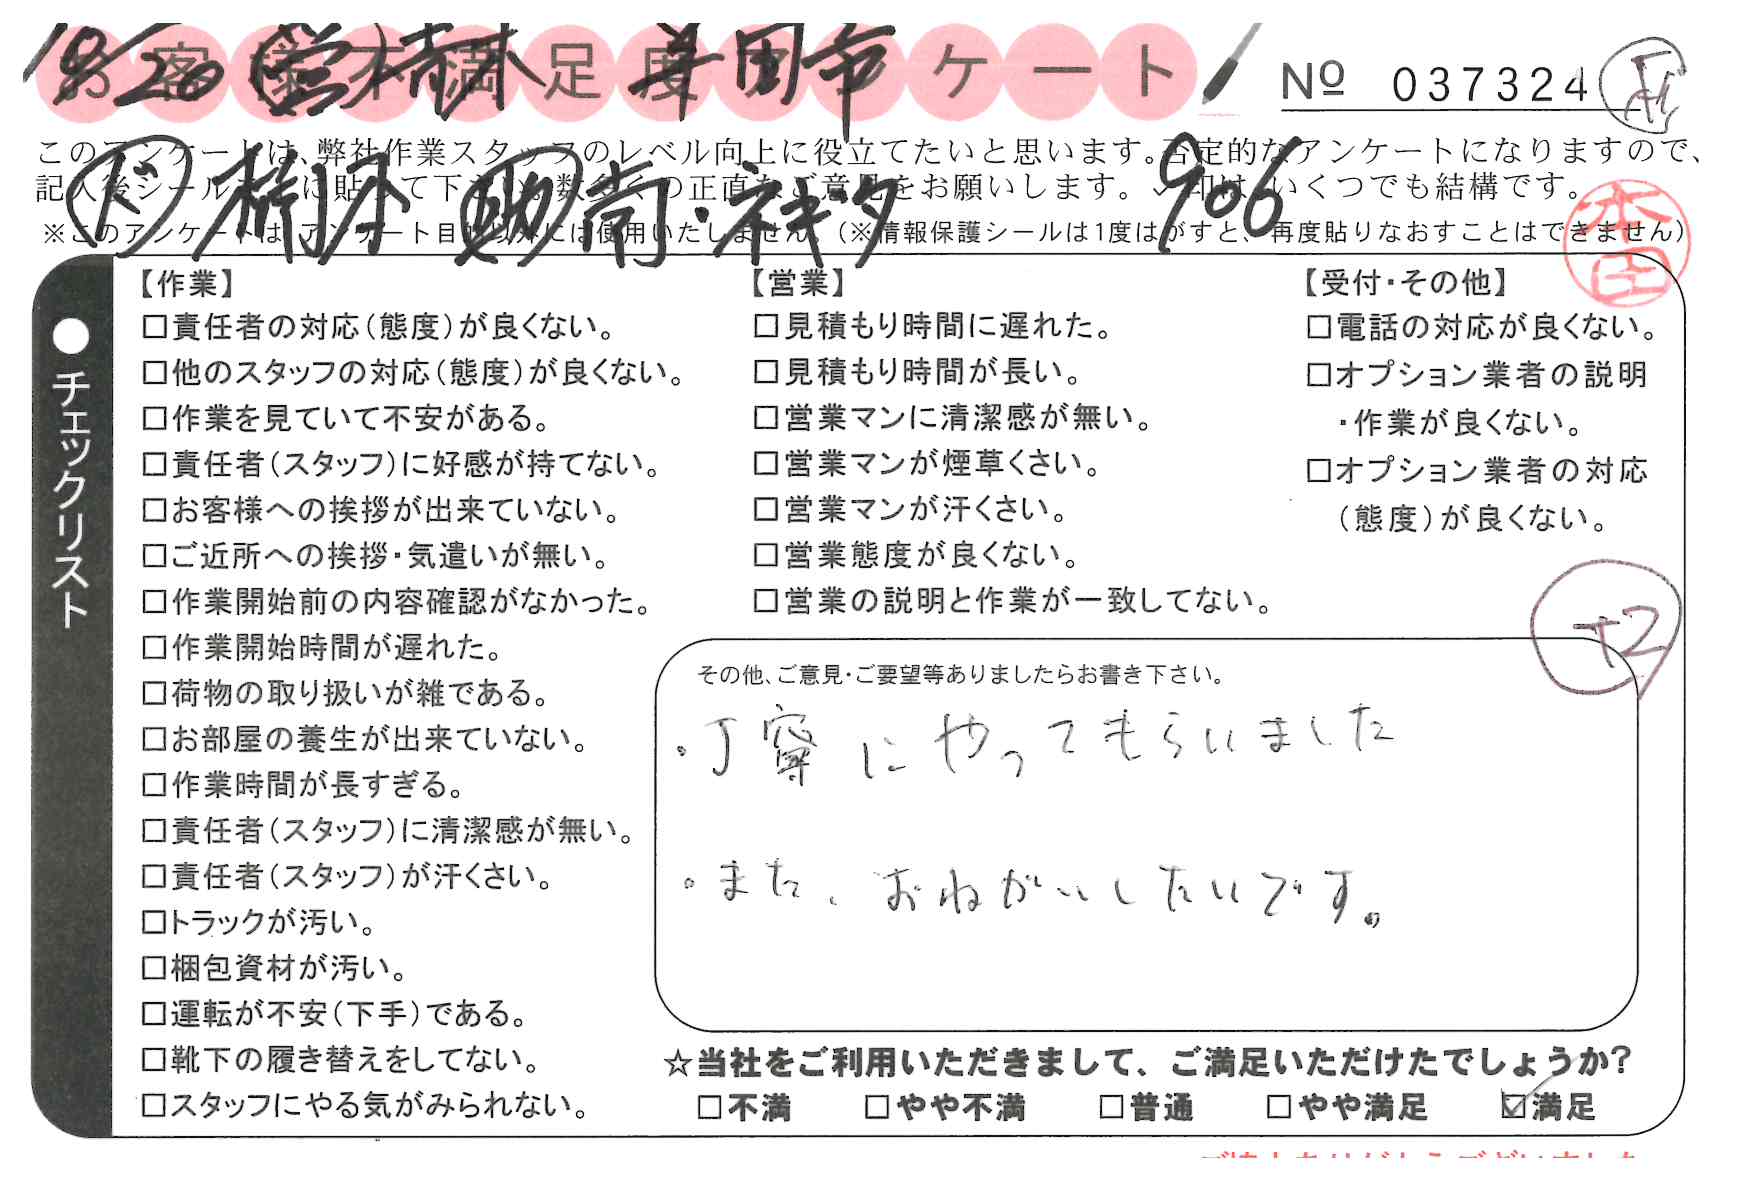 お客様不満足度アンケート
No 037324
10/20 営 青木 草田市
このアンケートは、弊社作業スタッフのレベル向上に役立てたいと思います。否定的なアンケートになりますので、
記入後シールを に貼って下さい。数多くの正直なご意見をお願いします。✓印は、いくつでも結構です。
ド 楠本 助 尚・ネギタ 906
※このアンケートは、アンケート目的以外には使用いたしません。(※情報保護シールは1度はがすと、再度貼りなおすことはできません)
本田
●チェックリスト
【作業】
□責任者の対応(態度)が良くない。
□他のスタッフの対応(態度)が良くない。
□作業を見ていて不安がある。
□責任者(スタッフ)に好感が持てない。
□お客様への挨拶が出来ていない。
□ご近所への挨拶・気遣いが無い。
□作業開始前の内容確認がなかった。
□作業開始時間が遅れた。
□荷物の取り扱いが雑である。
□お部屋の養生が出来ていない。
□作業時間が長すぎる。
□責任者(スタッフ)に清潔感が無い。
□責任者(スタッフ)が汗くさい。
□トラックが汚い。
□梱包資材が汚い。
□運転が不安(下手)である。
□靴下の履き替えをしてない。
□スタッフにやる気がみられない。
【営業】
□見積もり時間に遅れた。
□見積もり時間が長い。
□営業マンに清潔感が無い。
□営業マンが煙草くさい。
□営業マンが汗くさい。
□営業態度が良くない。
□営業の説明と作業が一致してない。
【受付・その他】
□電話の対応が良くない。
□オプション業者の説明
・作業が良くない。
□オプション業者の対応
(態度)が良くない。
+2
その他、ご意見・ご要望等ありましたらお書き下さい。
・丁寧にやってもらいました
・また、おねがいしたいです。
☆当社をご利用いただきまして、ご満足いただけたでしょうか?
□不満 □やや不満 □普通 □やや満足 ☑満足
ご協力ありがとうございました